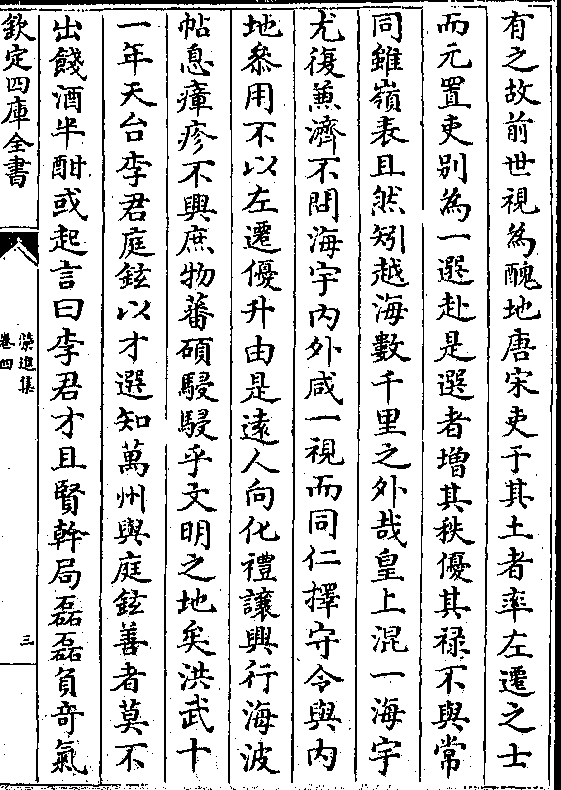 有之故前世視為醜地唐宋吏于其土者率左遷之士
而元置吏别為一選赴是選者增其秩優其禄不與常
同雖嶺表且然矧越海數千里之外哉皇上混一海宇
尤復兼濟不間海宇内外咸一視而同仁擇守令與内
地叅用不以左遷優升由是遠人向化禮讓興行海波
帖息瘴疹不興庶物蕃碩駸駸乎文明之地矣洪武十
一年天台李君庭鉉以才選知萬州與庭鉉善者莫不
出餞酒半酣或起言曰李君才且賢幹局磊磊負奇氣
欽定四庫全書
榮進集
卷四
三